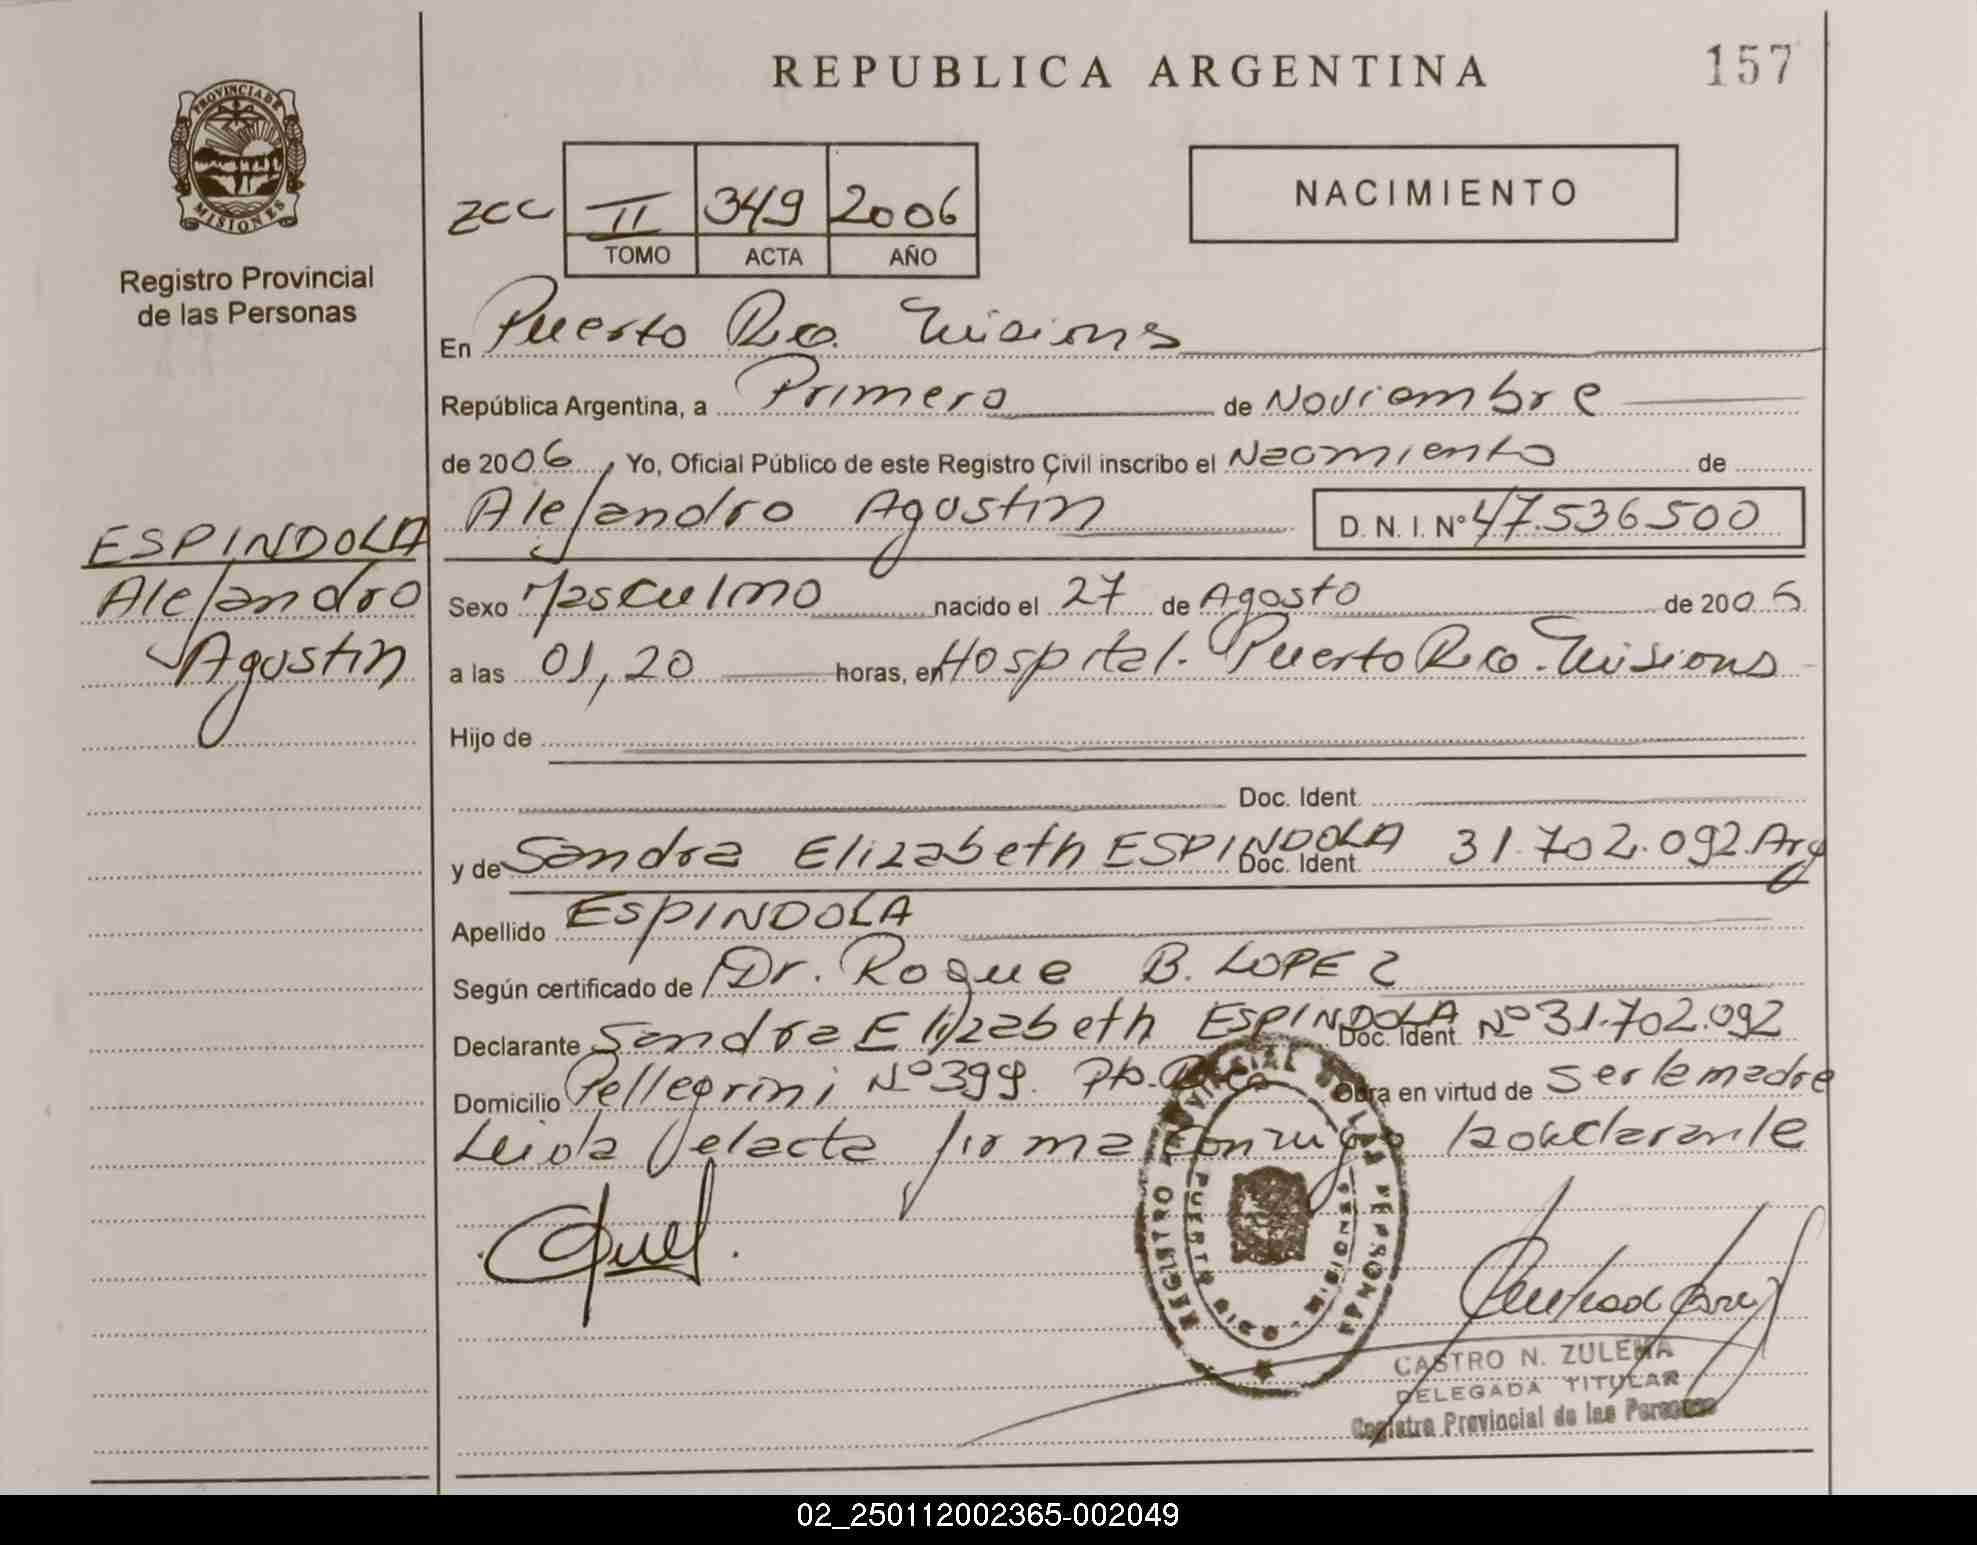 PROVINCIA DE
MISIONES
Registro Provincial
de las Personas
ESPINDOLA
Alejandro
Agustin
REPUBLICA ARGENTINA
157
zcc II 349 2006
TOMO ACTA AÑO
NACIMIENTO
En Puerto Rico. Misiones
República Argentina, a Primero de Noviembre
de 2006, Yo, Oficial Público de este Registro Civil inscribo el Nacimiento de
Alejandro Agustin D. N. I. Nº 47.536.500
Sexo Masculino nacido el 27 de Agosto de 2006
a las 01,20 horas, en Hospital. Puerto Rico. Misiones
Hijo de
Doc. Ident.
y de Sandra Elizabeth ESPINDOLA Doc. Ident. 31.702.092 Arg
Apellido ESPINDOLA
Según certificado de Dr. Roque B. LOPEZ
Declarante Sandra Elizabeth ESPINDOLA Doc. Ident. Nº 31.702.092
Domicilio Pellegrini Nº 399. Pto. Rico Obra en virtud de ser la madre
Leida el acta firma conmigo la declarante
REGISTRO PROVINCIAL DE LAS PERSONAS
PUERTO RICO - MISIONES
CASTRO N. ZULEMA
DELEGADA TITULAR
Registro Provincial de las Personas
02_250112002365-002049